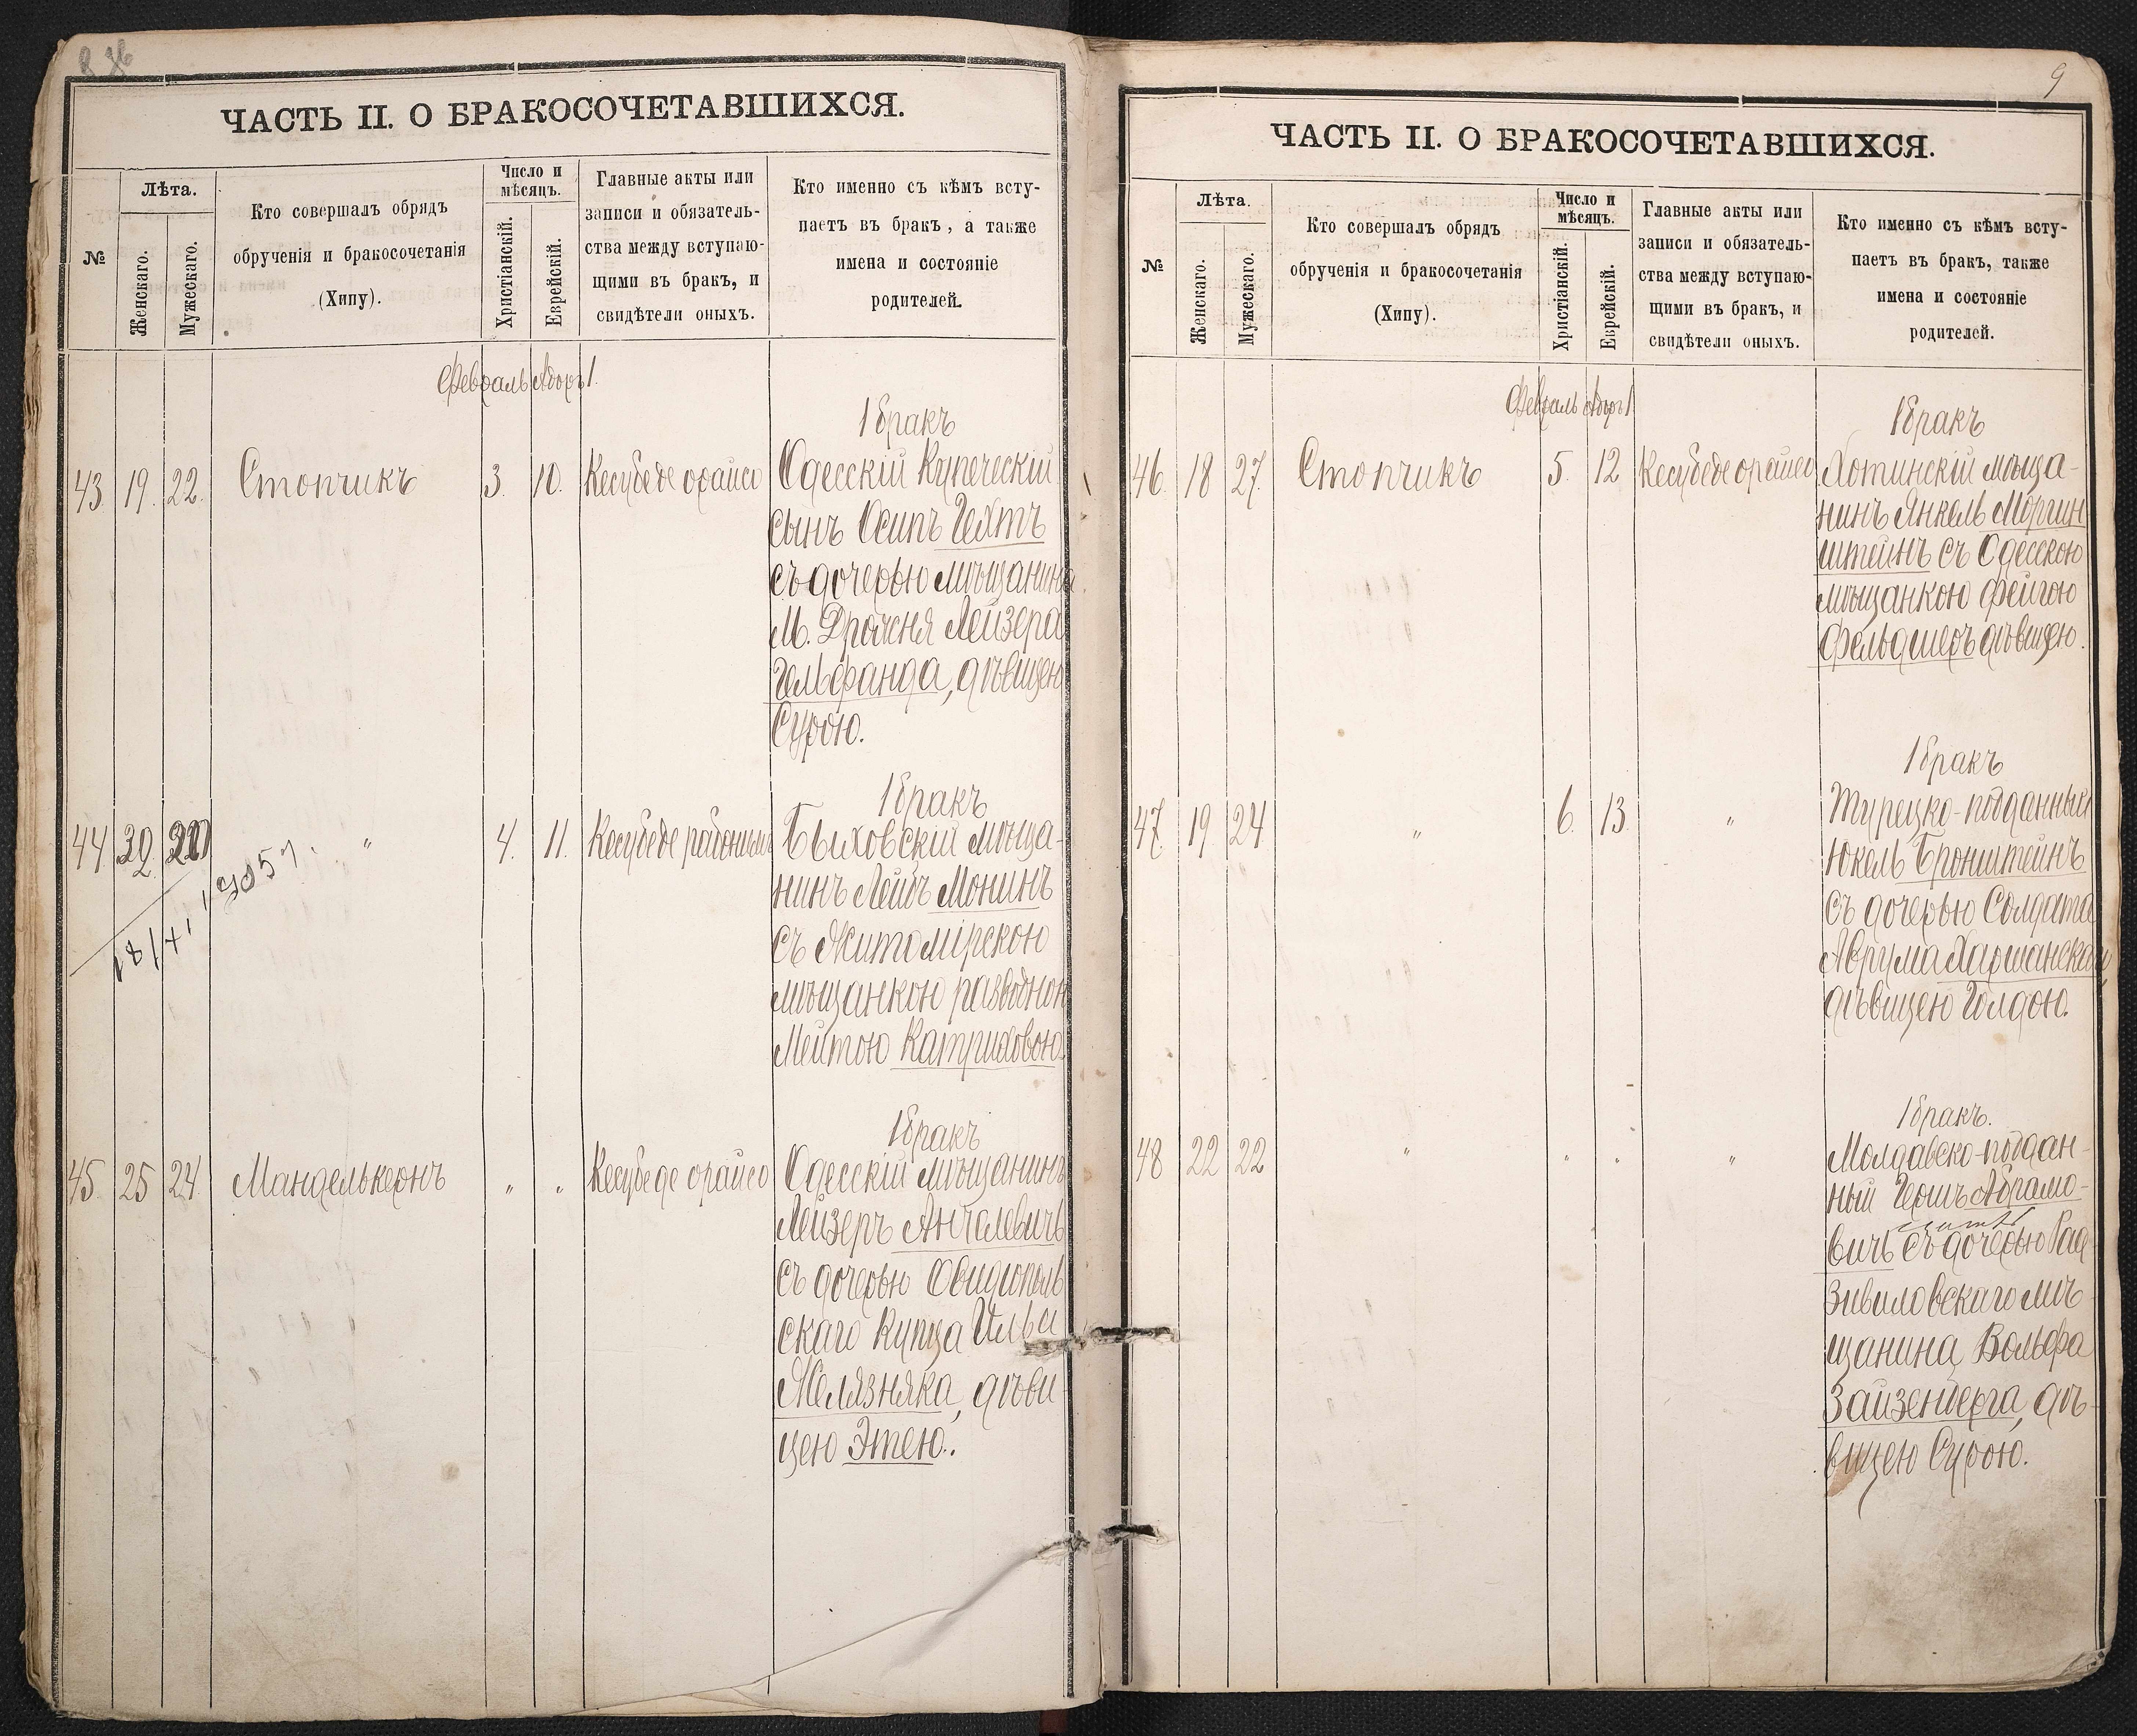 ЧАСТЬ II. О БРАКОСОЧЕТАВШИХСЯ.
№
Лѣта.
Женскаго.
Мужескаго.
Кто совершалъ обрядъ
обрученія и бракосочетанія
(Хипу).
Число и
мѣсяцъ.
Христіанскій.
Еврейскій.
Главные акты или
записи и обязатель-
ства между вступаю-
щими въ бракъ, и
свидѣтели оныхъ.
Кто именно съ кѣмъ всту-
паетъ въ бракъ, а также
имена и состояніе
родителей.
Февраль Адоръ 1.
1 бракъ
43. 19. 22. Стопчикъ 3. 10. Кесубеде орайсо Одесскій Купеческій
сынъ Осипъ Гехтъ
съ дочерью мѣщанина
М. Дрожня Лейзера
Гельфанда, дѣвицею
Сурою.
1 бракъ
44 " 4. 11. Кесубеде Быховскій мѣща-
нинъ Лейбъ Монинъ
съ Житомірскою
мѣщанкою разводною
Мейтою Катриховою.
1 бракъ
45. 25 24. Манделькернъ " " Кесубеде орайсо Одесскій мѣщанинъ
Лейзеръ Анчелевичъ
съ дочерью Овидіополь
скаго Купца
Желязняка, дѣви-
цею Этею.
9
ЧАСТЬ II. О БРАКОСОЧЕТАВШИХСЯ.
№
Лѣта.
Женскаго.
Мужескаго.
Кто совершалъ обрядъ
обрученія и бракосочетанія
(Хипу).
Число и
мѣсяцъ.
Христіанскій.
Еврейскій.
Главные акты или
записи и обязатель-
ства между вступаю-
щими въ бракъ, и
свидѣтели оныхъ.
Кто именно съ кѣмъ всту-
паетъ въ бракъ, также
имена и состояніе
родителей.
Февраль Адоръ 1
1 бракъ
46. 18 27. Стопчикъ 5. 12 Кесубеде орайсо Хотинскій мѣща-
нинъ Янкель Моргин
штейнъ съ Одесскою
мѣщанкою Фейгою
Фельдшеръ дѣвицею.
1 бракъ
47. 19 24 " 6. 13. " Турецко-подданный
Юкель Бронштейнъ
съ дочерью Солдата
Аврума Харшанскаго
дѣвицею Голдою.
1 бракъ.
48 22 22 " " " " Молдавско-поддан-
ный Гершъ Абрамо-
вичъ съ дочерью Рад
зивиловскаго мѣ
щанина Вольфа
Зайзенберга, дѣ-
вицею Сурою.